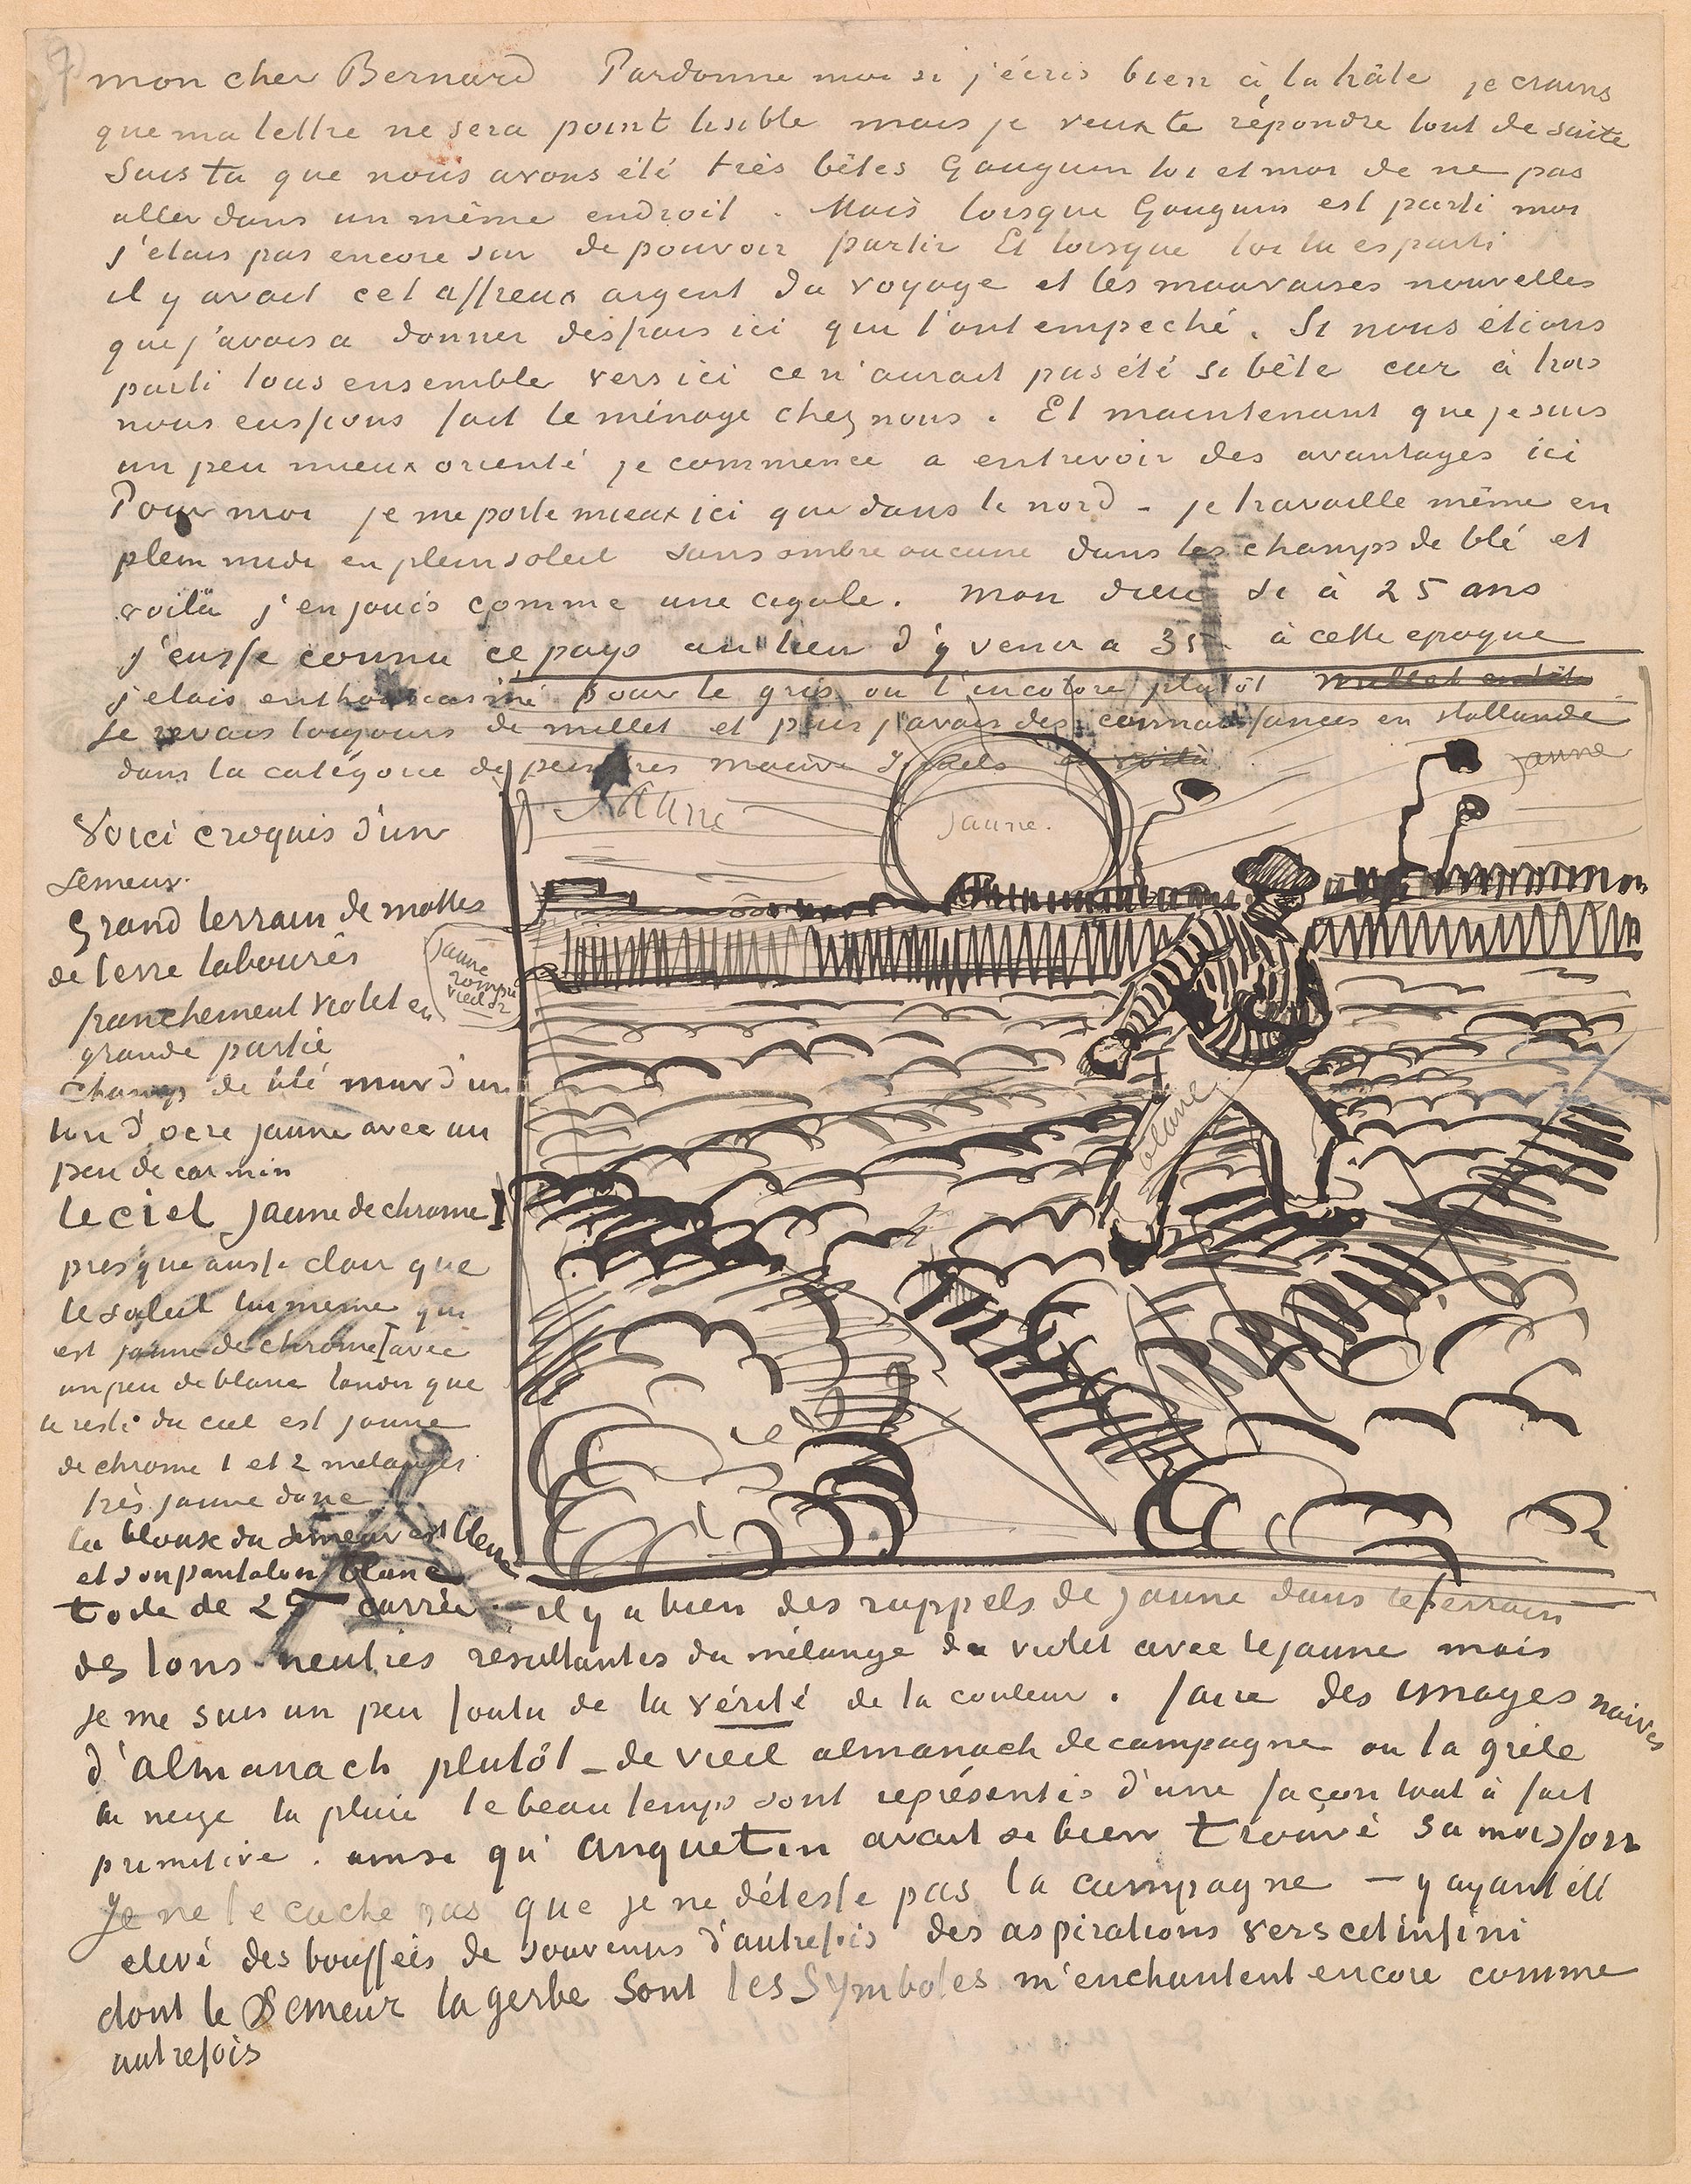 mon cher Bernard Pardonne moi si j'écris bien à la hâte je crains
que ma lettre ne sera point lisible mais je veux te répondre tout de suite
Sais tu que nous avons été très bêtes Gauguin toi et moi de ne pas
aller dans un même endroit. Mais lorsque Gauguin est parti moi
j'etais pas encore sur de pouvoir partir Et lorsque toi tu es parti
il y avait cet affreux argent du voyage et les mauvaises nouvelles
que j'avais a donner des frais ici qui l'ont empeché. Si nous étions
parti tous ensemble vers ici ce n'aurait pas été si bête car à trois
nous eussions fait le ménage chez nous. Et maintenant que je suis
un peu mieux orienté je commence a entrevoir des avantages ici
Pour moi je me porte mieux ici que dans le nord - je travaille même en
plein midi en plein soleil sans ombre aucune dans les champs de blé et
voilà j'en jouis comme une cigale. Mon dieu si à 25 ans
j'eusse connu ce pays au lieu d'y venir a 35 à cette epoque
j'etais enthousiasmé pour le gris ou l'incolore plutôt
je revais toujours de millet et puis j'avais des connaissances en Hollande
dans la catégorie de peintres mauve Israels
jaune
Jaune
jaune.
Voici croquis d'un
Semeur.
Grand terrain de mottes
de terre labourés
franchement violet en
grande partie
jaune
rompu
Champ de blé mur d'un
ton d'ocre jaune avec un
peu de carmin
blanc
le ciel jaune de chrome 1
presque aussi clair que
le soleil lui meme qui
est jaune de chrome 1 avec
un peu de blanc tandis que
le reste du ciel est jaune
de chrome 1 et 2 melangés
très jaune donc
la blouse du Semeur est bleue
et son pantalon blanc
toile de 25 carrée - il y a bien des rappels de jaune dans le terrain
des tons neutres résultantes du mélange du violet avec le jaune mais
je me suis un peu foutu de la vérité de la couleur. faire des images naives
d'almanach plutôt - de vieil almanach de campagne ou la grêle
la neige la pluie le beau temps sont représentés d'une façon tout à fait
primitive. ainsi qu'Anquetin avait si bien trouvé sa moisson
Je ne te cache pas que je ne déteste pas la campagne - y ayant été
elevé des bouffées de souvenirs d'autrefois des aspirations vers cet infini
dont le Semeur la gerbe sont les symboles m'enchantent encore comme
autrefois